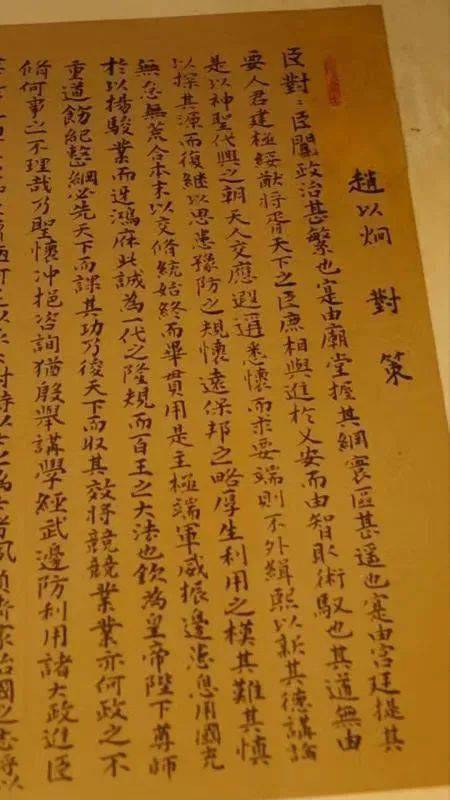 趙以炯 對策
臣對：臣聞政治甚繁也寔由廟堂握其綱寰區甚遥也寔由宮廷提其
要人君建極綏猷將胥天下之臣庶相與進於乂安而由智取術馭也其道無由
是以神聖代興之朝天人交應遐邇悉懷而求要端則不外緝熙以新其德講論
以探其源而復繼以思患豫防之規懷遠保邦之略厚生利用之模其難其慎
無怠無荒合本末以交修統始終而畢貫用是主極端軍威振邊患息用國充
於以揚駿業而迓鴻庥此誠為一代之隆規而百王之大法也欽為皇帝陛下尊師
重道飭紀整綱必先天下而課其功乃後天下而收其效將競競業業亦何政之不
脩何事之不理哉乃聖懷沖挹咨詢猶殷舉講學經武邊防利用諸大政進臣